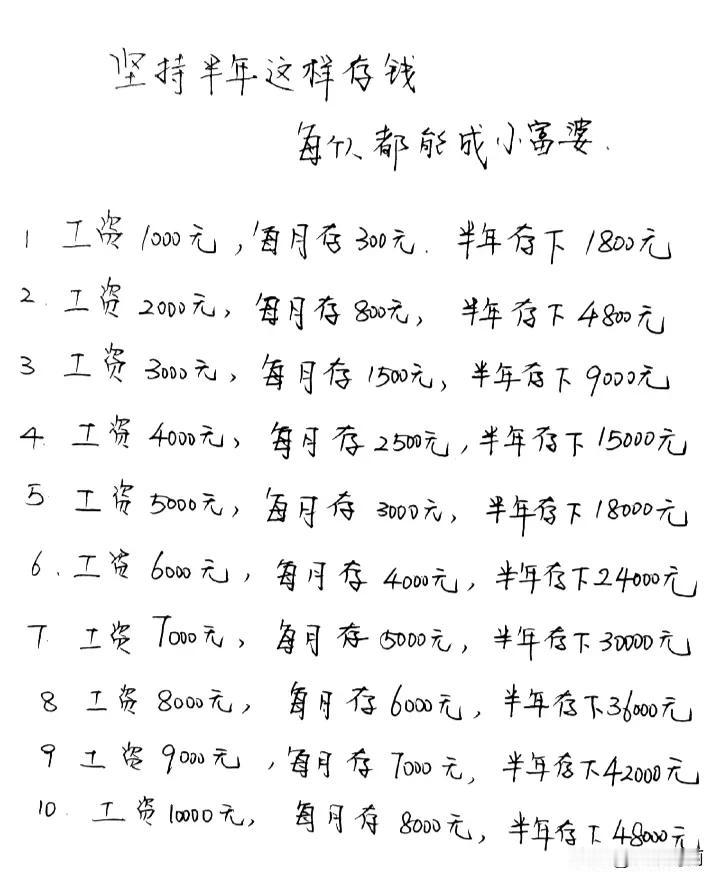 坚持半年这样存钱
每个人都能成小富婆.
1 工资1000元,每月存300元. 半年存下1800元
2. 工资2000元, 每月存800元, 半年存下4800元
3 工资3000元, 每月存1500元, 半年存下9000元
4. 工资4000元, 每月存2500元, 半年存下15000元
5 工资5000元, 每月存3000元, 半年存下18000元
6. 工资6000元, 每月存4000元, 半年存下24000元
7. 工资7000元, 每月存5000元, 半年存下30000元
8 工资8000元, 每月存6000元, 半年存下36000元
9 工资9000元,每月存7000元, 半年存下42000元
10. 工资10000元, 每月存8000元, 半年存下48000元